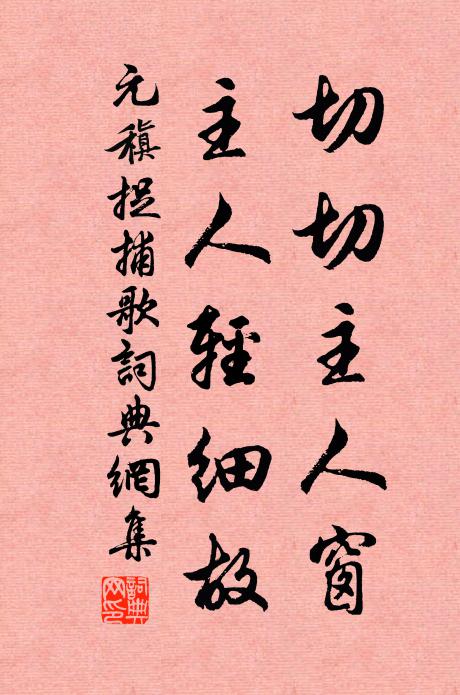 切切主人窗
主人輕細故
元稹捉捕歌詞典網集
詞典網印